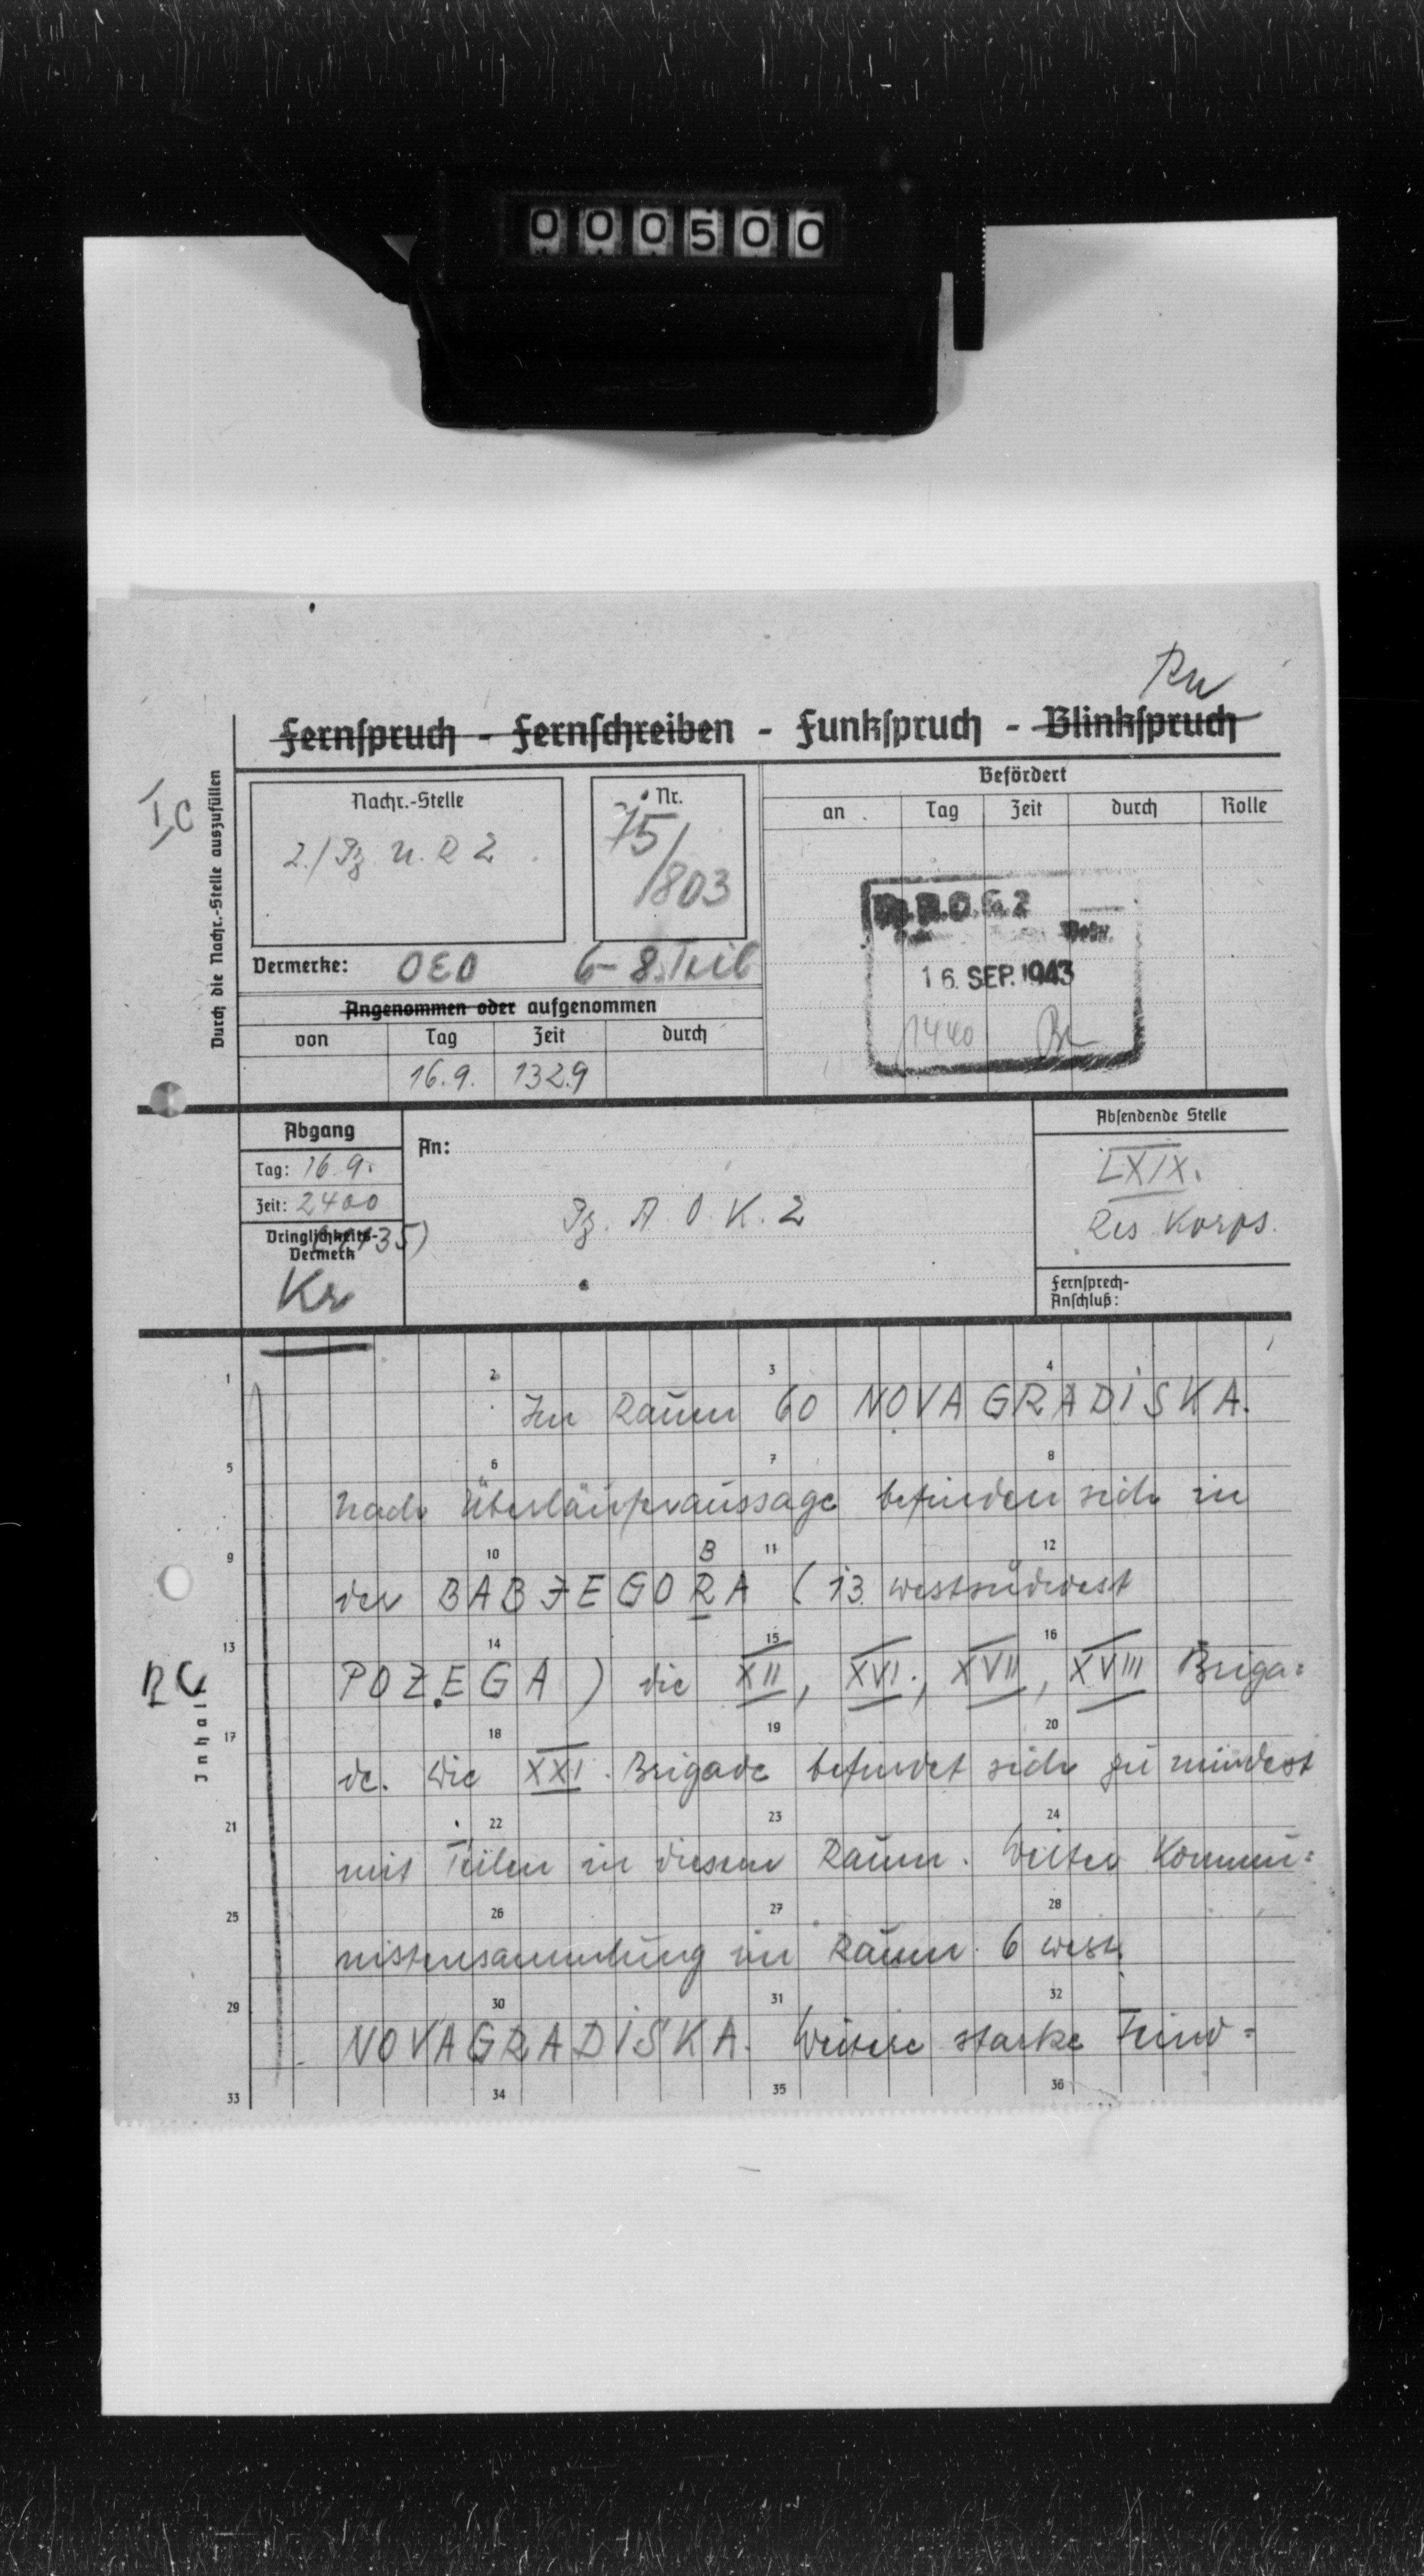 000500
Rn
Fernspruch - Fernschreiben - Funkspruch - Blinkspruch
Ic
Durch die Nachr.-Stelle auszufüllen
Nachr.-Stelle
2./Pz N.R 2
Nr.
75/803
Befördert
an Tag Zeit durch Rolle
A.O.K. 2
16. SEP. 1943
1440
Vermerke: 6-8.Teil
Angenommen oder aufgenommen
von Tag Zeit durch
16.9. 1329
Abgang
Tag: 16.9.
Zeit: 2400
Dringlichkeits-
Vermerk
Kr
An:
Pz. A. O. K. 2
Absendende Stelle
LXIX.
Res Korps.
Fernsprech-
Anschluß:
Inhalt
Im Raum 60 NOVA GRADISKA.
Nach Überläuferaussage befinden sich in
B
der BABJEGORA (13 westsüdwest
POZEGA) die XII, XVI., XVII, XVIII Briga=
de. Die XXI. Brigade befindet sich zumindest
mit Teilen in diesem Raum. Weiter Kommu=
nistensammlung im Raum 6 westl
NOVAGRADISKA. Weitere starke Feind=
1 2 3 4
5 6 7 8
9 10 11 12
13 14 15 16
17 18 19 20
21 22 23 24
25 26 27 28
29 30 31 32
33 34 35 36